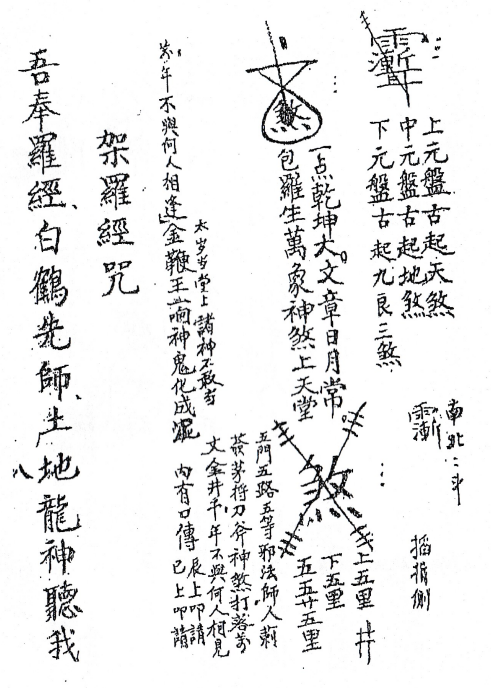 上元盤古起天煞
中元盤古起地煞
下元盤古起九良三煞
煞
一点乾坤大文章日月常
包羅生萬象神煞上天堂
太岁当堂上諸神不敢当
年不與何人相逢金鞭王一响神鬼化成泥
架羅經咒
吾奉羅經、白鶴先師、土地龍神聽我
八
南北二斗
煞
上五里 井
下五里
五五廿五里
五門五路五等邪法師人
茅將刀斧神煞打落
丈金井千年不與何人相見
內有口傳
辰上叩請
巳上叩請